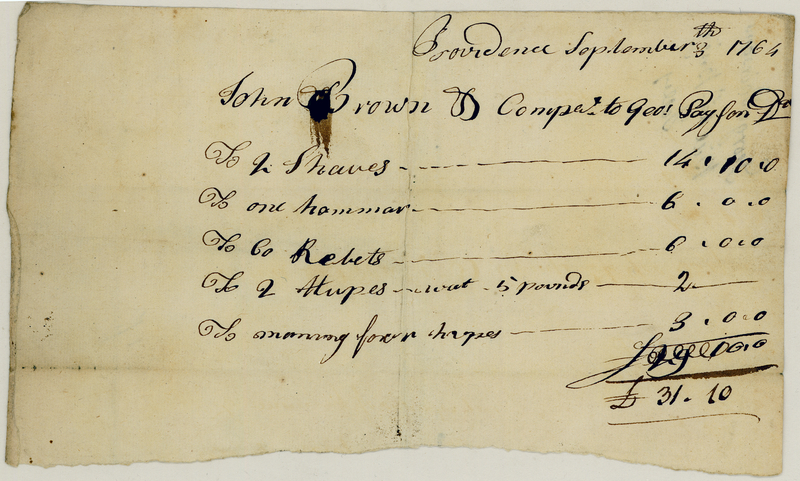 Providence September 3th 1764
John Brown & Compa. to Geo: Payson Dr
To 2 Shaves 14.10.0
To one hammar 6.0.0
To 60 Rebets 6.0.0
To 2 Hupes wat 5 pounds 2
To maning fower hupes 3.0.0
£ 31.10